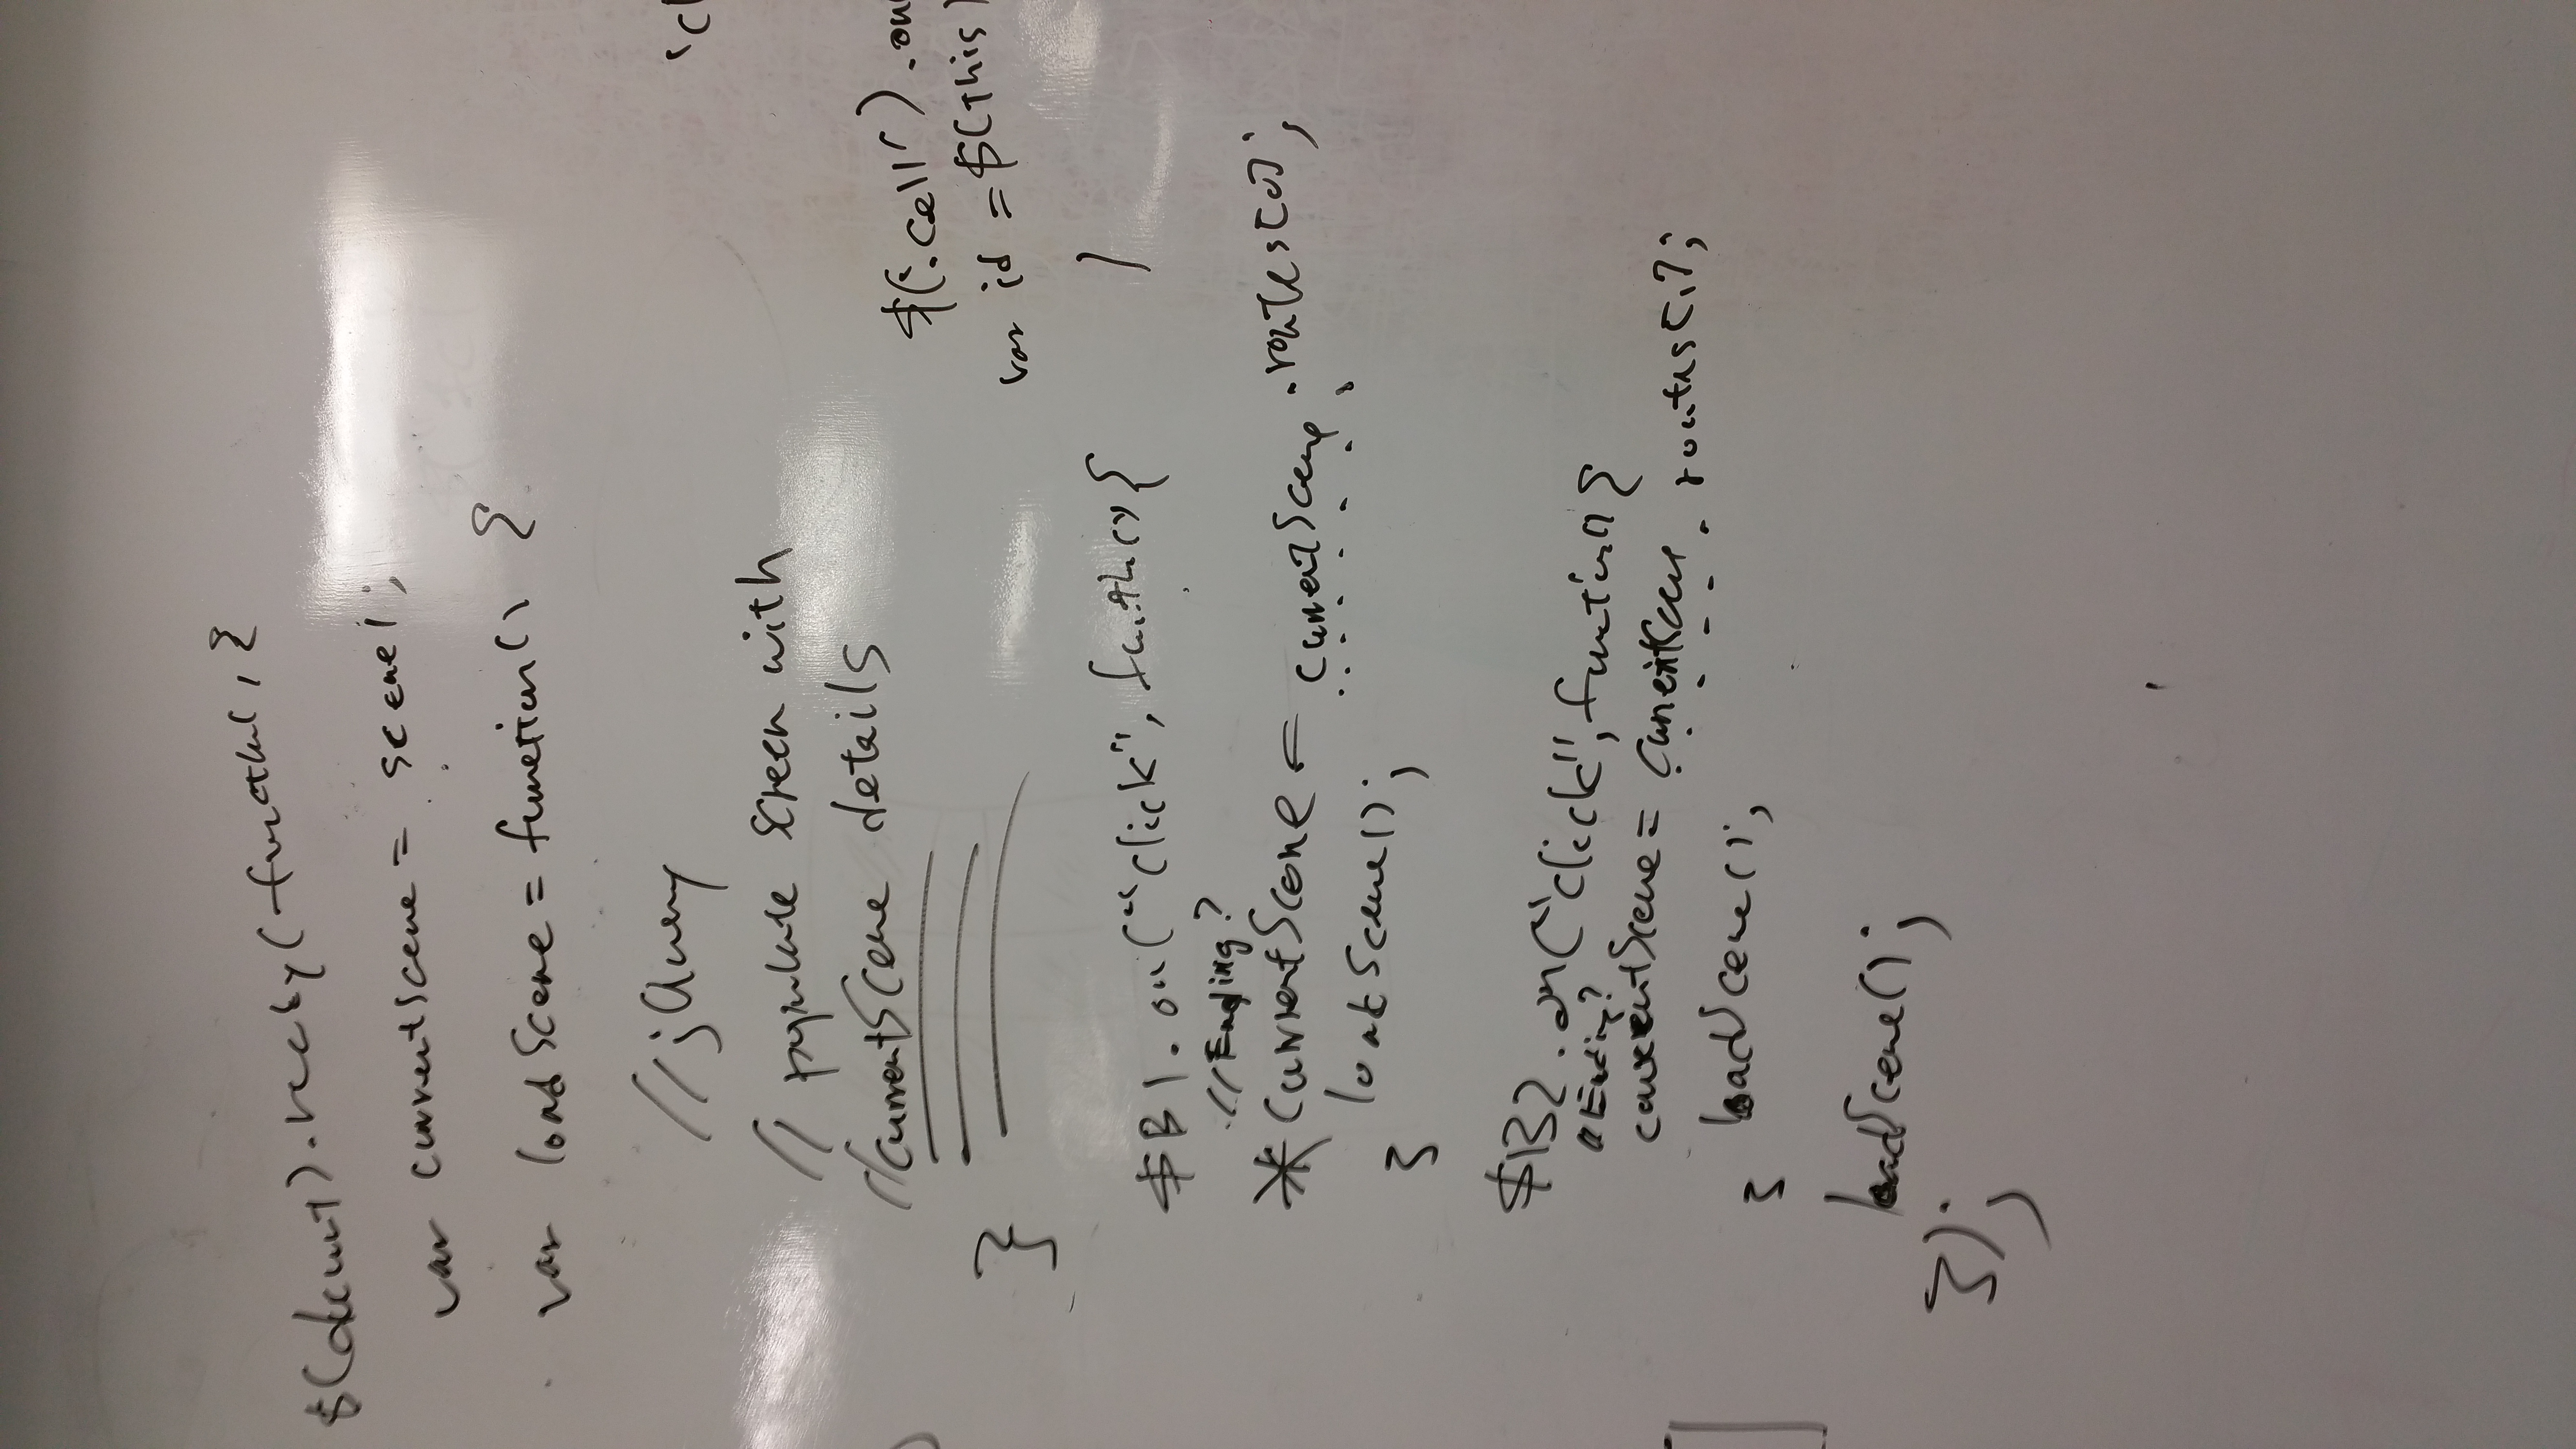 $(document).ready(function, {
var currentScene = scene1;
var loadScene = function() {
//jQuery
// populate screen with
//currentScene details
}
$B1.on("click", function() {
//Ending?
* currentScene = currentScene.routes[0];
loadScene();
}
$B2.on("click", function() {
//Ending?
currentScene = currentScene.routes[1];
loadScene();
}
loadScene();
});
'cl
$('.cell').on
var id = $(this)